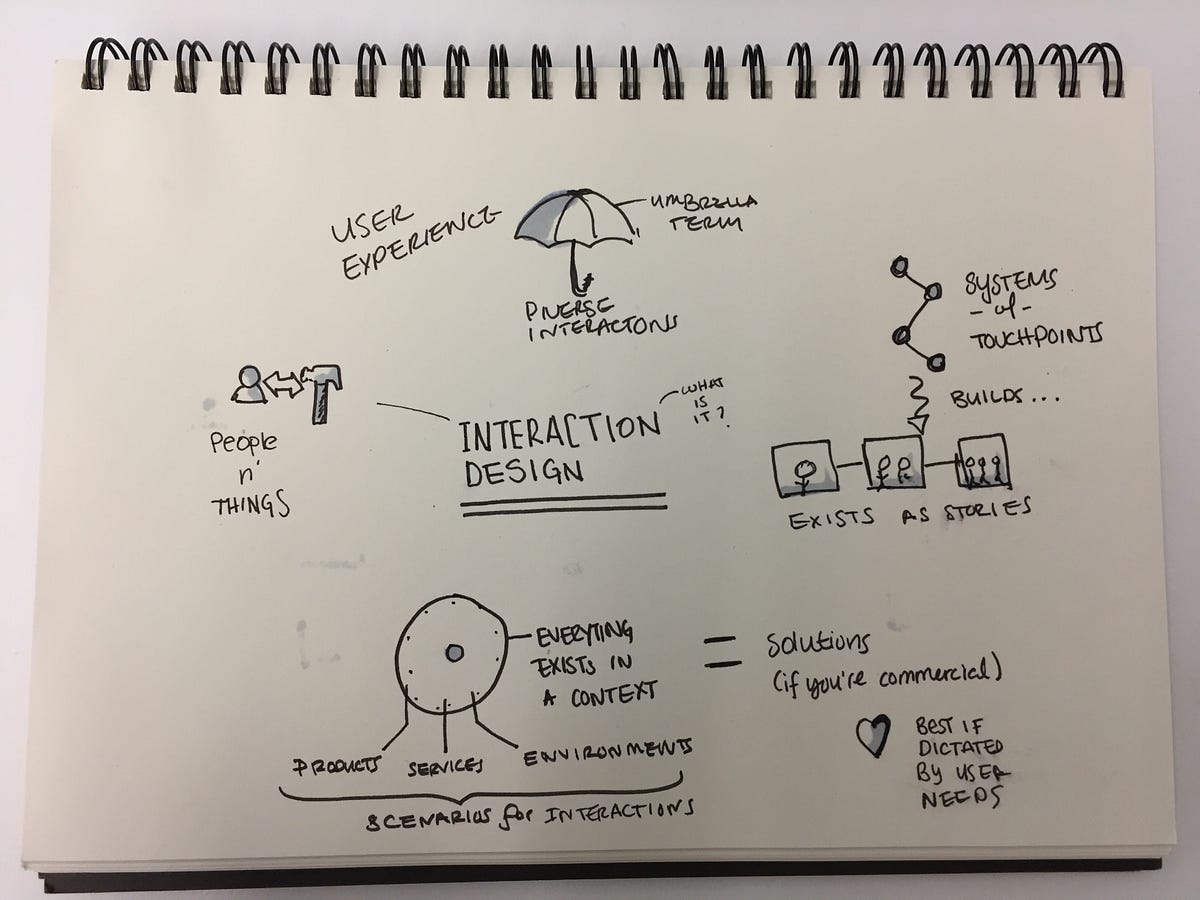 USER
EXPERIENCE
UMBRELLA
TERM
DIVERSE
INTERACTONS
SYSTEMS
- of -
TOUCHPOINTS
BUILDS...
EXISTS AS STORIES
PEOPLE
n'
THINGS
INTERACTION
DESIGN
WHAT
IS
IT?
EVERYTING
EXISTS IN
A CONTEXT
PRODUCTS SERVICES ENVIRONMENTS
SCENARIOS for INTERACTIONS
=
Solutions
(if you're commercial)
BEST IF
DICTATED
BY USER
NEEDS